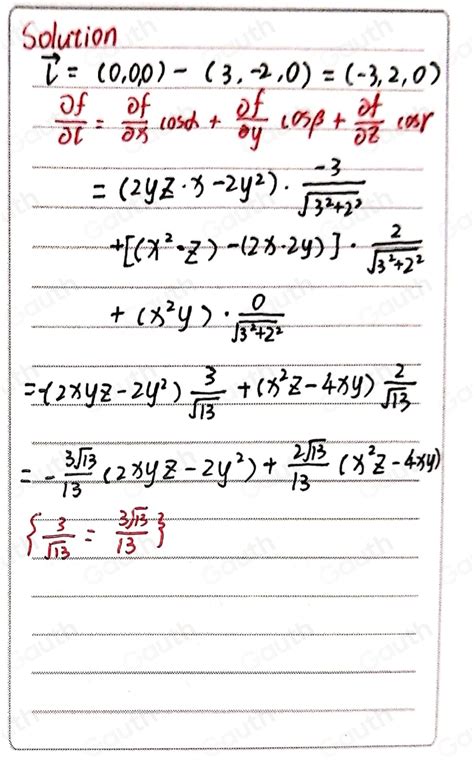 Solution
l⃗ = (0,0,0) - (3,-2,0) = (-3,2,0)
∂f/∂l = ∂f/∂x cosα + ∂f/∂y cosβ + ∂f/∂z cosγ
= (2yz·x-2y²)·-3/√(3²+2²)
+[(x²·z)-(2x·2y)]·2/√(3²+2²)
+(x²y)·0/√(3²+2²)
=-(2xyz-2y²)3/√13+(x²z-4xy)2/√13
=-3√13/13(2xyz-2y²)+2√13/13(x²z-4xy)
{3/√13=3√13/13}